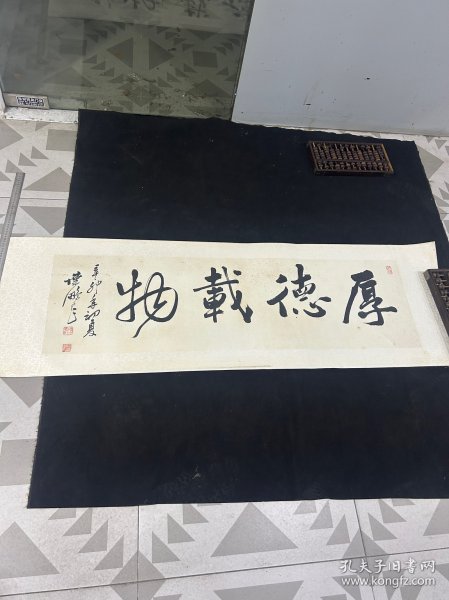 厚德載物
辛卯年初夏
孔夫子旧书网
www.kongfz.com